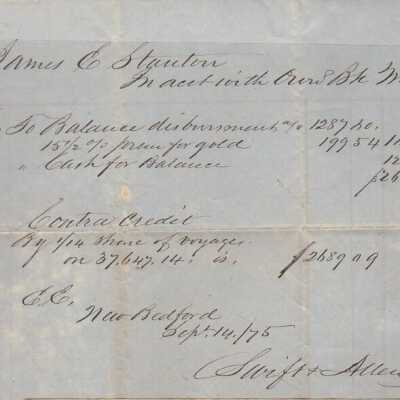 James E Stanton
In acct with Own's Bk W
To Balance disbursment a/c 1287 20.
15 1/2 % prem for gold 199 54 1
" Cash for Balance 12
$26
Contra Credit
By 1/14 share of voyage.
on 37,647.14. is. $2689 09
E.E.
New Bedford
Sept. 14./75
Swift & Allen